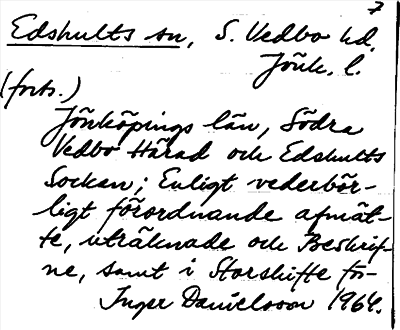 7
Edshults sn, S. Vedbo hd.
Jönk. l.
(forts.)
Jönköpings län, Södra
Vedbo Härad och Edshults
Sockan; Enligt vederbör-
ligt förordnande afmät-
te, uträknade och Beskrif-
ne, samt i Storskifte för-
Inger Danielsson 1964.